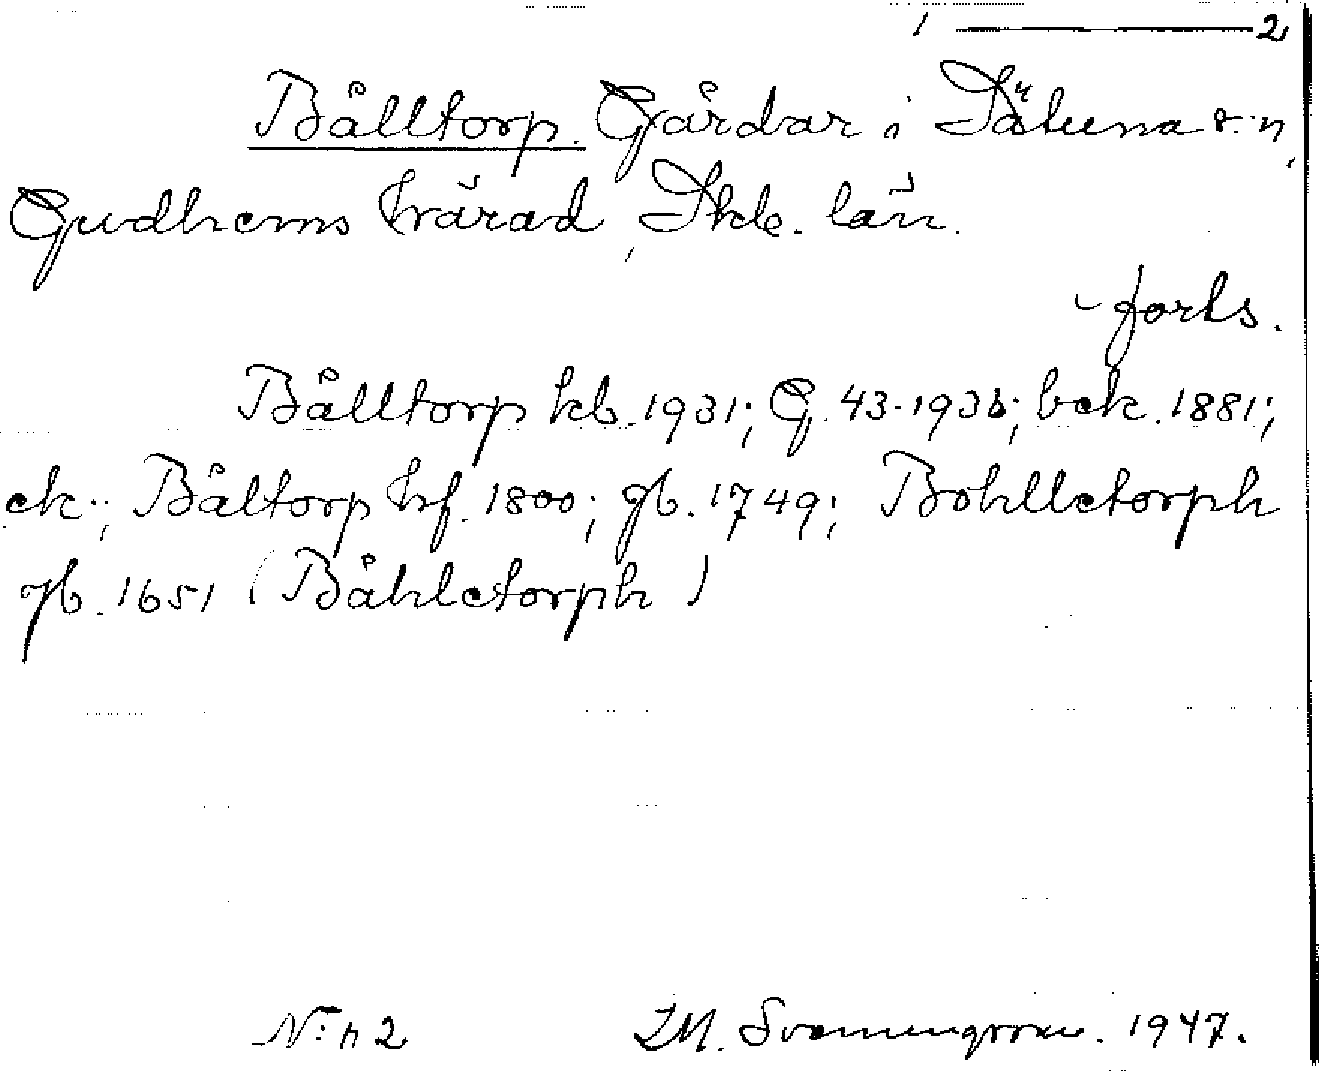 1 ——— 2
Bålltorp. Gårdar i Sätuna s:n,
Gudhems härad, Skb. län.
forts.
Bålltorp kb. 1931; G. 43-1933; bek. 1881;
ek.; Båltorp hf. 1800; jb. 1749; Bohlletorph
jb. 1651 (Båhletorph)
N:r 2 I.M. 1947.